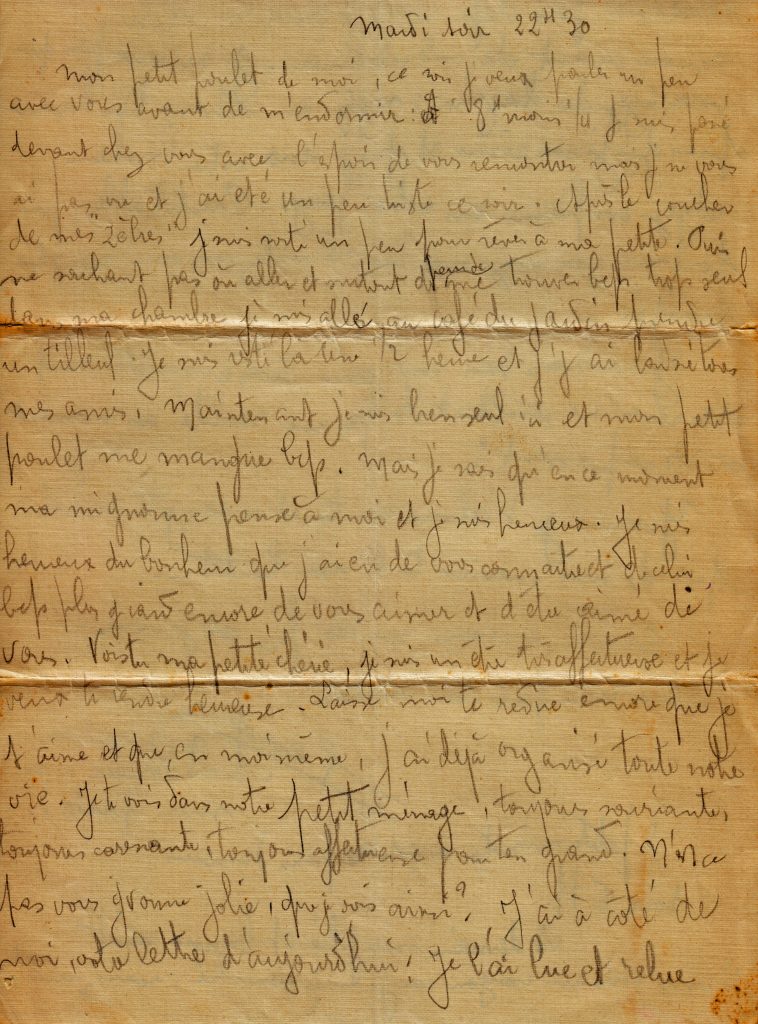 Mardi soir 22H30
Mon petit poulet de moi, ce soir je veux parler un peu
avec vous avant de m'endormir : 8h moins 1/4 je suis passé
devant chez vous avec l'espoir de vous rencontrer mais je ne vous
ai pas vu et j'ai été un peu triste ce soir. Après le coucher
de mes "zèbres" je suis sorti un peu pour rêver à ma petite. Puis
ne sachant pas où aller et surtout de peur de me trouver bcp trop seul
dans ma chambre je suis allé au café du jardin prendre
un tilleul. Je suis resté là une 1/2 heure et j'y ai tous
mes amis. Maintenant je suis bien seul ici et mon petit
poulet me manque bcp. Mais je sais qu'en ce moment
ma mignonne pense à moi et je suis heureux. Je suis
heureux du bonheur que j'ai eu de vous connaitre et de celui
bcp plus grand encore de vous aimer et d'être aimé de
vous. Vois tu ma petite chérie, je suis un être très affectueux et je
veux te rendre heureuse. Laisse moi te redire encore que je
t'aime et que, en moi même, j'ai déjà organisé toute notre
vie. Je te vois dans notre petit ménage, toujours souriante,
toujours caressante, toujours affectueuse pour ton grand. N'est ce
pas vous gronme jolie, que je sois ainsi ? J'ai à côté de
moi, votre lettre d'aujourd'hui. Je l'ai lue et relue